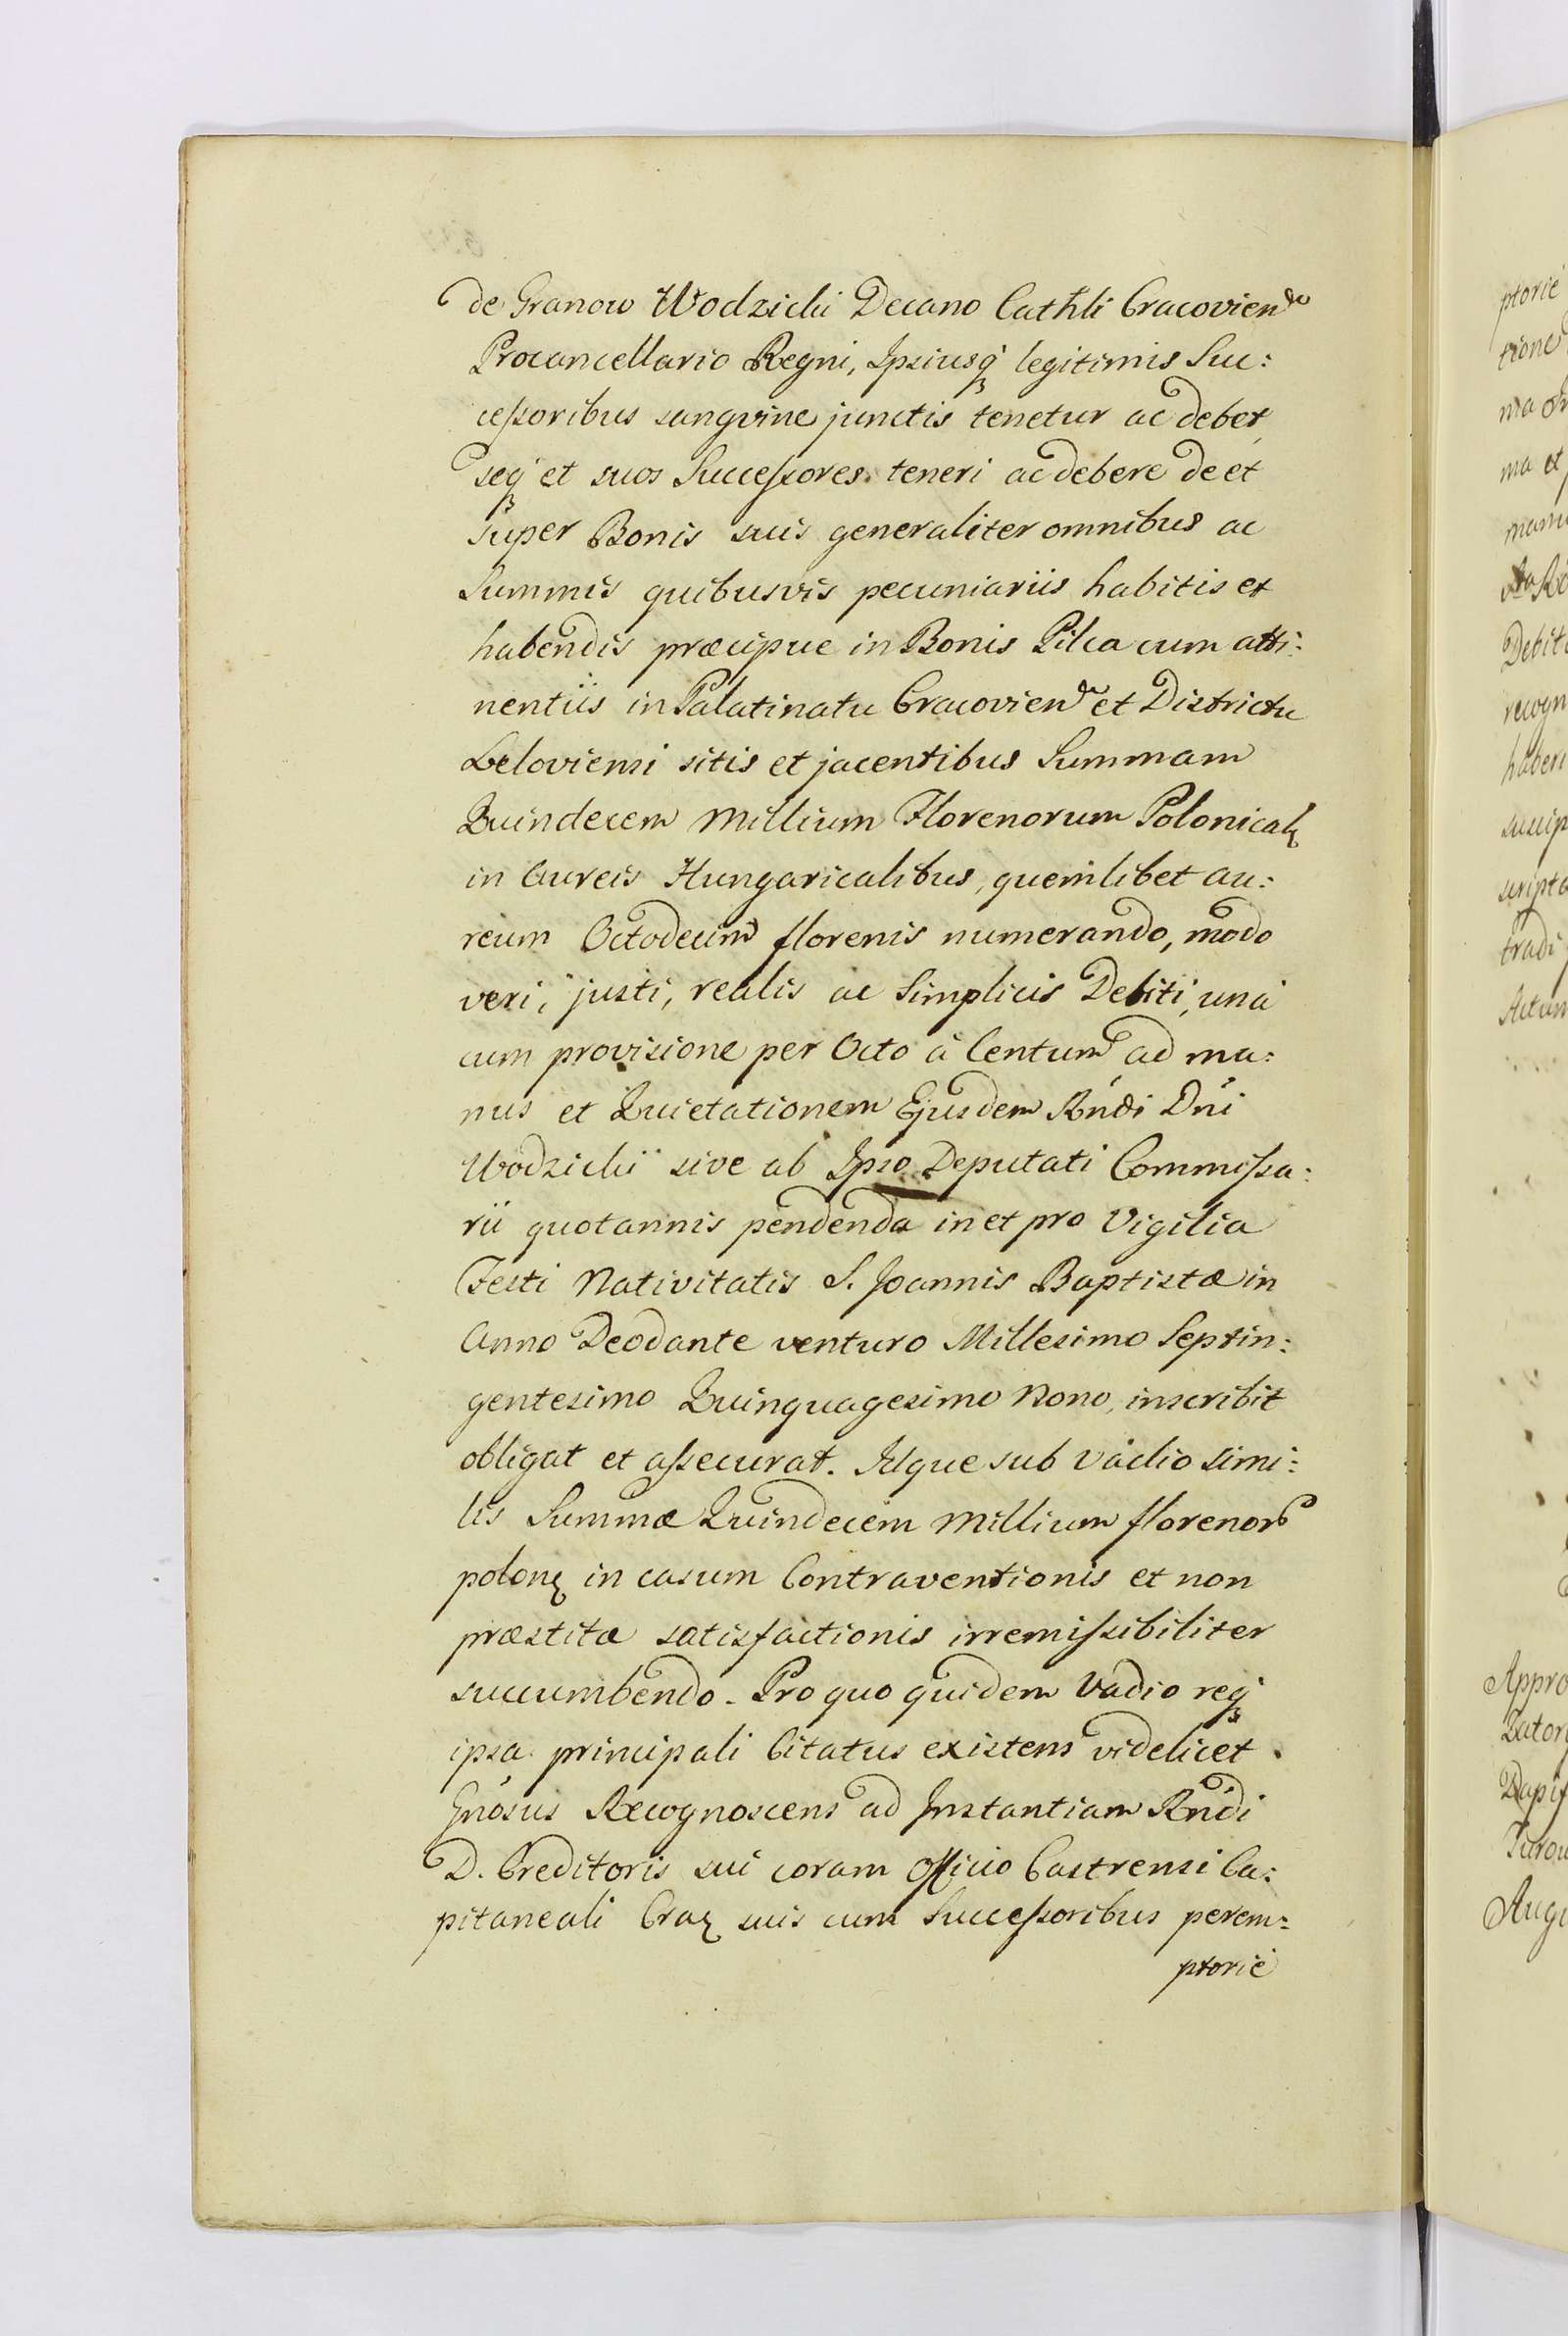 de Granow Wodzicki Decano Cathli Cracovien
Procancellario Regni, Ipsiusq legitimis Suc:
cessoribus sangvine junctis tenetur ac debet,
seq et suos Successores teneri ac debere de et
super Bonis suis generaliter omnibus ac
Summis quibusvis pecuniariis habitis et
habendis præcipue in Bonis Pilca cum atti:
nentiis in Palatinatu Cracovien et Districtu
Leloviensi sitis et jacentibus Summam
Quindecem Millium Florenorum Polonical
in Aureis Hungaricalibus, quemlibet au:
reum Octodecim florenis numerando, modo
veri, justi, realis ac Simplicis Debiti, una
cum provisione per Octo à Centum ad ma:
nus et Quietationem Ejusdem Rndi Dni
Wodzicki sive ab Ipso Deputati Commissa:
rii quotannis pendenda in et pro Vigilia
Festi Nativitatis S. Joannis Baptistæ in
Anno Deodante venturo Millesimo Septin:
gentesimo Quinquagesimo Nono, inscribit
obligat et assecurat. Idque sub vadio simi:
lis Summæ Quindecem Millium florenor
polon in casum Contraventionis et non
præstitæ satisfactionis irremissibiliter
succumbendo. Pro quo quidem Vadio req
ipsa principali Citatus existens videlicet
Gnosus Recognoscens ad Instantiam Rndi
D. Creditoris sui coram Officio Castrensi Ca:
pitaneali Crac suis cum Successoribus perem:
ptorie
ptorie
tione
ma
ma et
Debit
recogn
haberi
suscip
scripta
tradi
Actum
Appro
Dapif
Augu